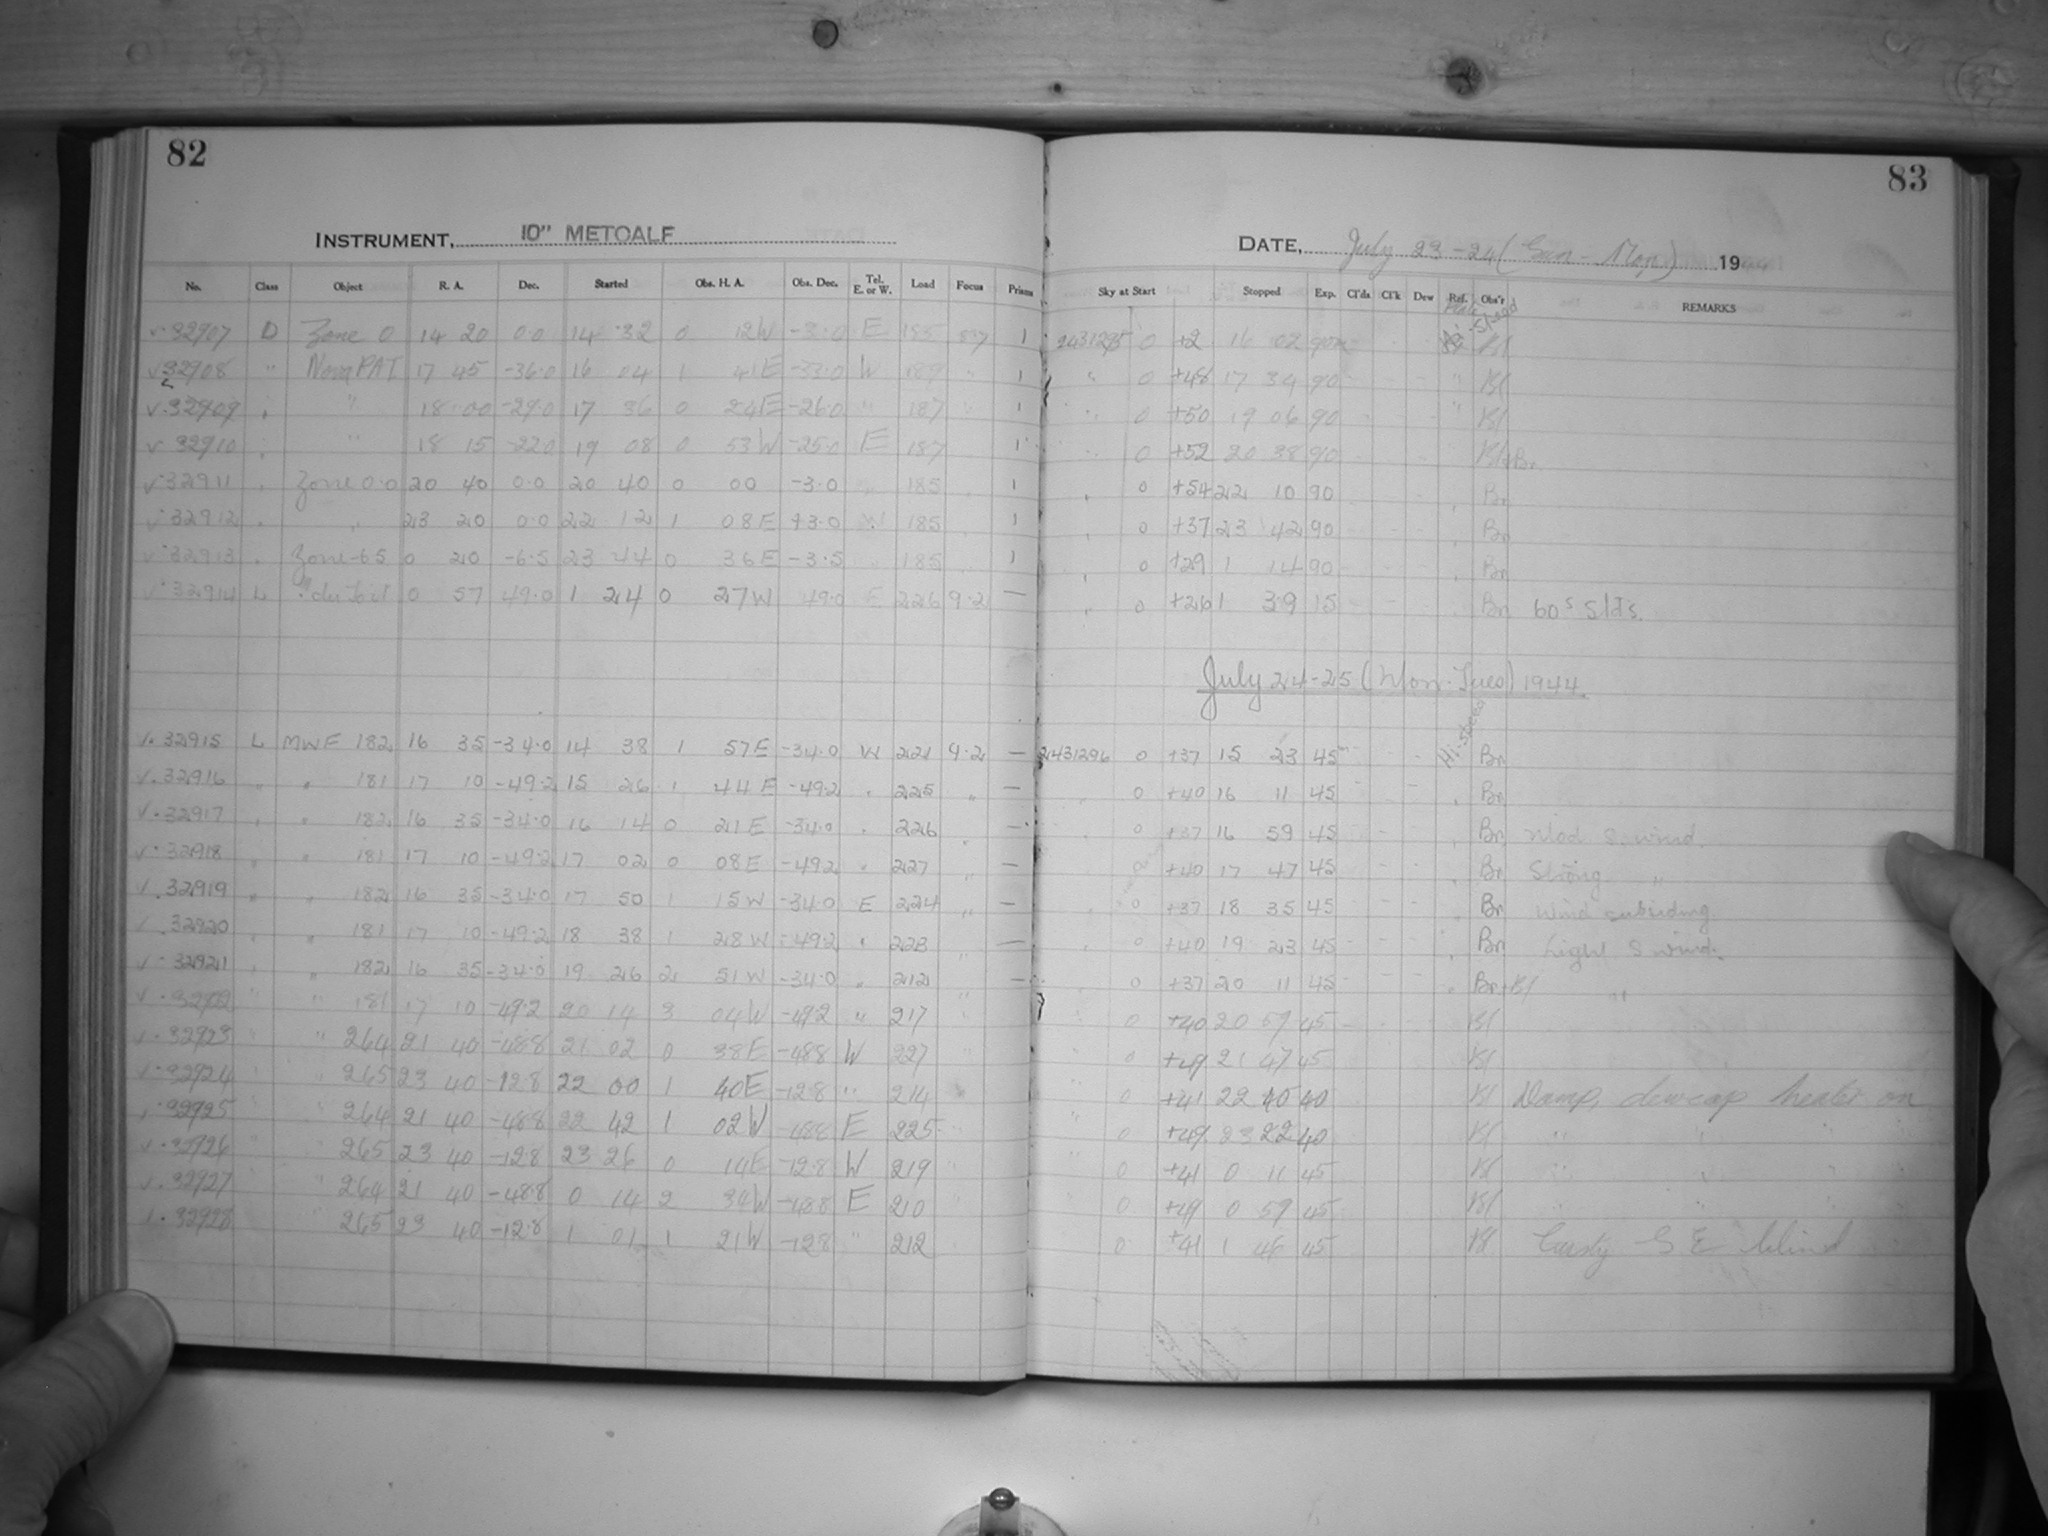 82
INSTRUMENT, 10" METCALF
No. Class Object R. A. Dec. Started Obs. H. A. Obs. Dec. Tel. E. or W. Load Focus Prism
v 32907 D Zone 0 14 20 0.0 14 32 0 12W -3.0 E 185 1
v 32908 " Nova PAT 17 45 -36.0 16 04 1 41E -33.0 W 189 " 1
v.32909 " " 18 00 -29.0 17 36 0 24E -26.0 " 187 " 1
v 32910 " " 18 15 -22.0 19 08 0 53W -25.0 E 187 1
v 32911 " Zone 0.0 20 40 0.0 20 40 0 00 -3.0 " 185 " 1
v 32912 " " 23 20 0.0 22 12 1 08E +3.0 W 185 1
v 32913 " Zone -6.5 0 20 -6.5 23 44 0 36E -3.5 " 185 " 1
v 32914 L du Toit 0 57 49.0 1 24 0 27W 49.0 E 226 9.2 —
v. 32915 L MWF 182 16 35 -34.0 14 38 1 57E -34.0 W 221 9.2 —
v. 32916 " " 181 17 10 -49.2 15 26 1 44E -49.2 " 225 " —
v. 32917 " " 182 16 35 -34.0 16 14 0 21E -34.0 " 226 " —
v. 32918 " " 181 17 10 -49.2 17 02 0 08E -49.2 " 227 " —
v. 32919 " " 182 16 35 -34.0 17 50 1 15W -34.0 E 224 " —
v. 32920 " " 181 17 10 -49.2 18 38 1 28W -49.2 " 223 " —
v. 32921 " " 182 16 35 -34.0 19 26 2 51W -34.0 " 212 " —
v. 32922 " " 181 17 10 -49.2 20 14 3 04W -49.2 " 217 "
v. 32923 " " 264 21 40 -48.8 21 02 0 38E -48.8 W 227 "
v. 32924 " " 265 23 40 -12.8 22 00 1 40E -12.8 " 214 "
v. 32925 " " 264 21 40 -48.8 22 42 1 02W -48.8 E 225 "
v. 32926 " " 265 23 40 -12.8 23 26 0 14E -12.8 W 219 "
v. 32927 " 264 21 40 -48.8 0 14 2 34W -48.8 E 210 "
v. 32928 " 265 23 40 -12.8 1 01 1 21W -12.8 " 212
83
DATE, July 23-24 (Sun - Mon) 19
Sky at Start Stopped Exp. Cl'ds Cl'k Dew Ref. Obs'r REMARKS
2431295 0 +2 16 02 90m Bl
" 0 +48 17 34 90 " Bl
" 0 +50 19 06 90 " Bl
" 0 +52 20 38 90 Bl+Br
" 0 +54 22 10 90 " Br
" 0 +37 23 42 90 " Br
" 0 +29 1 14 90 " Br
" 0 +26 1 39 15 " Br 60s Slds.
July 24-25 (Mon-Tues) 1944.
2431296 0 +37 15 23 45m Hi-Speed Br
" 0 +40 16 11 45 " Br
" 0 +37 16 59 45 " Br Mod S. wind.
+40 17 47 45 " Br Strong "
" 0 +37 18 35 45 " Br Wind subsiding
" 0 +40 19 23 45 " Br Light S wind.
" 0 +37 20 11 45 " Br+Bl "
" 0 +40 20 59 45 Bl
" 0 +49 21 47 45 Bl
" 0 +41 22 40 40 Bl Damp, dewcap heater on
" 0 +49 23 22 40 Bl " " "
" 0 +41 0 11 45 Bl " " "
" 0 +49 0 59 45 Bl " " "
0 +41 1 46 45 Bl Gusty S E Wind